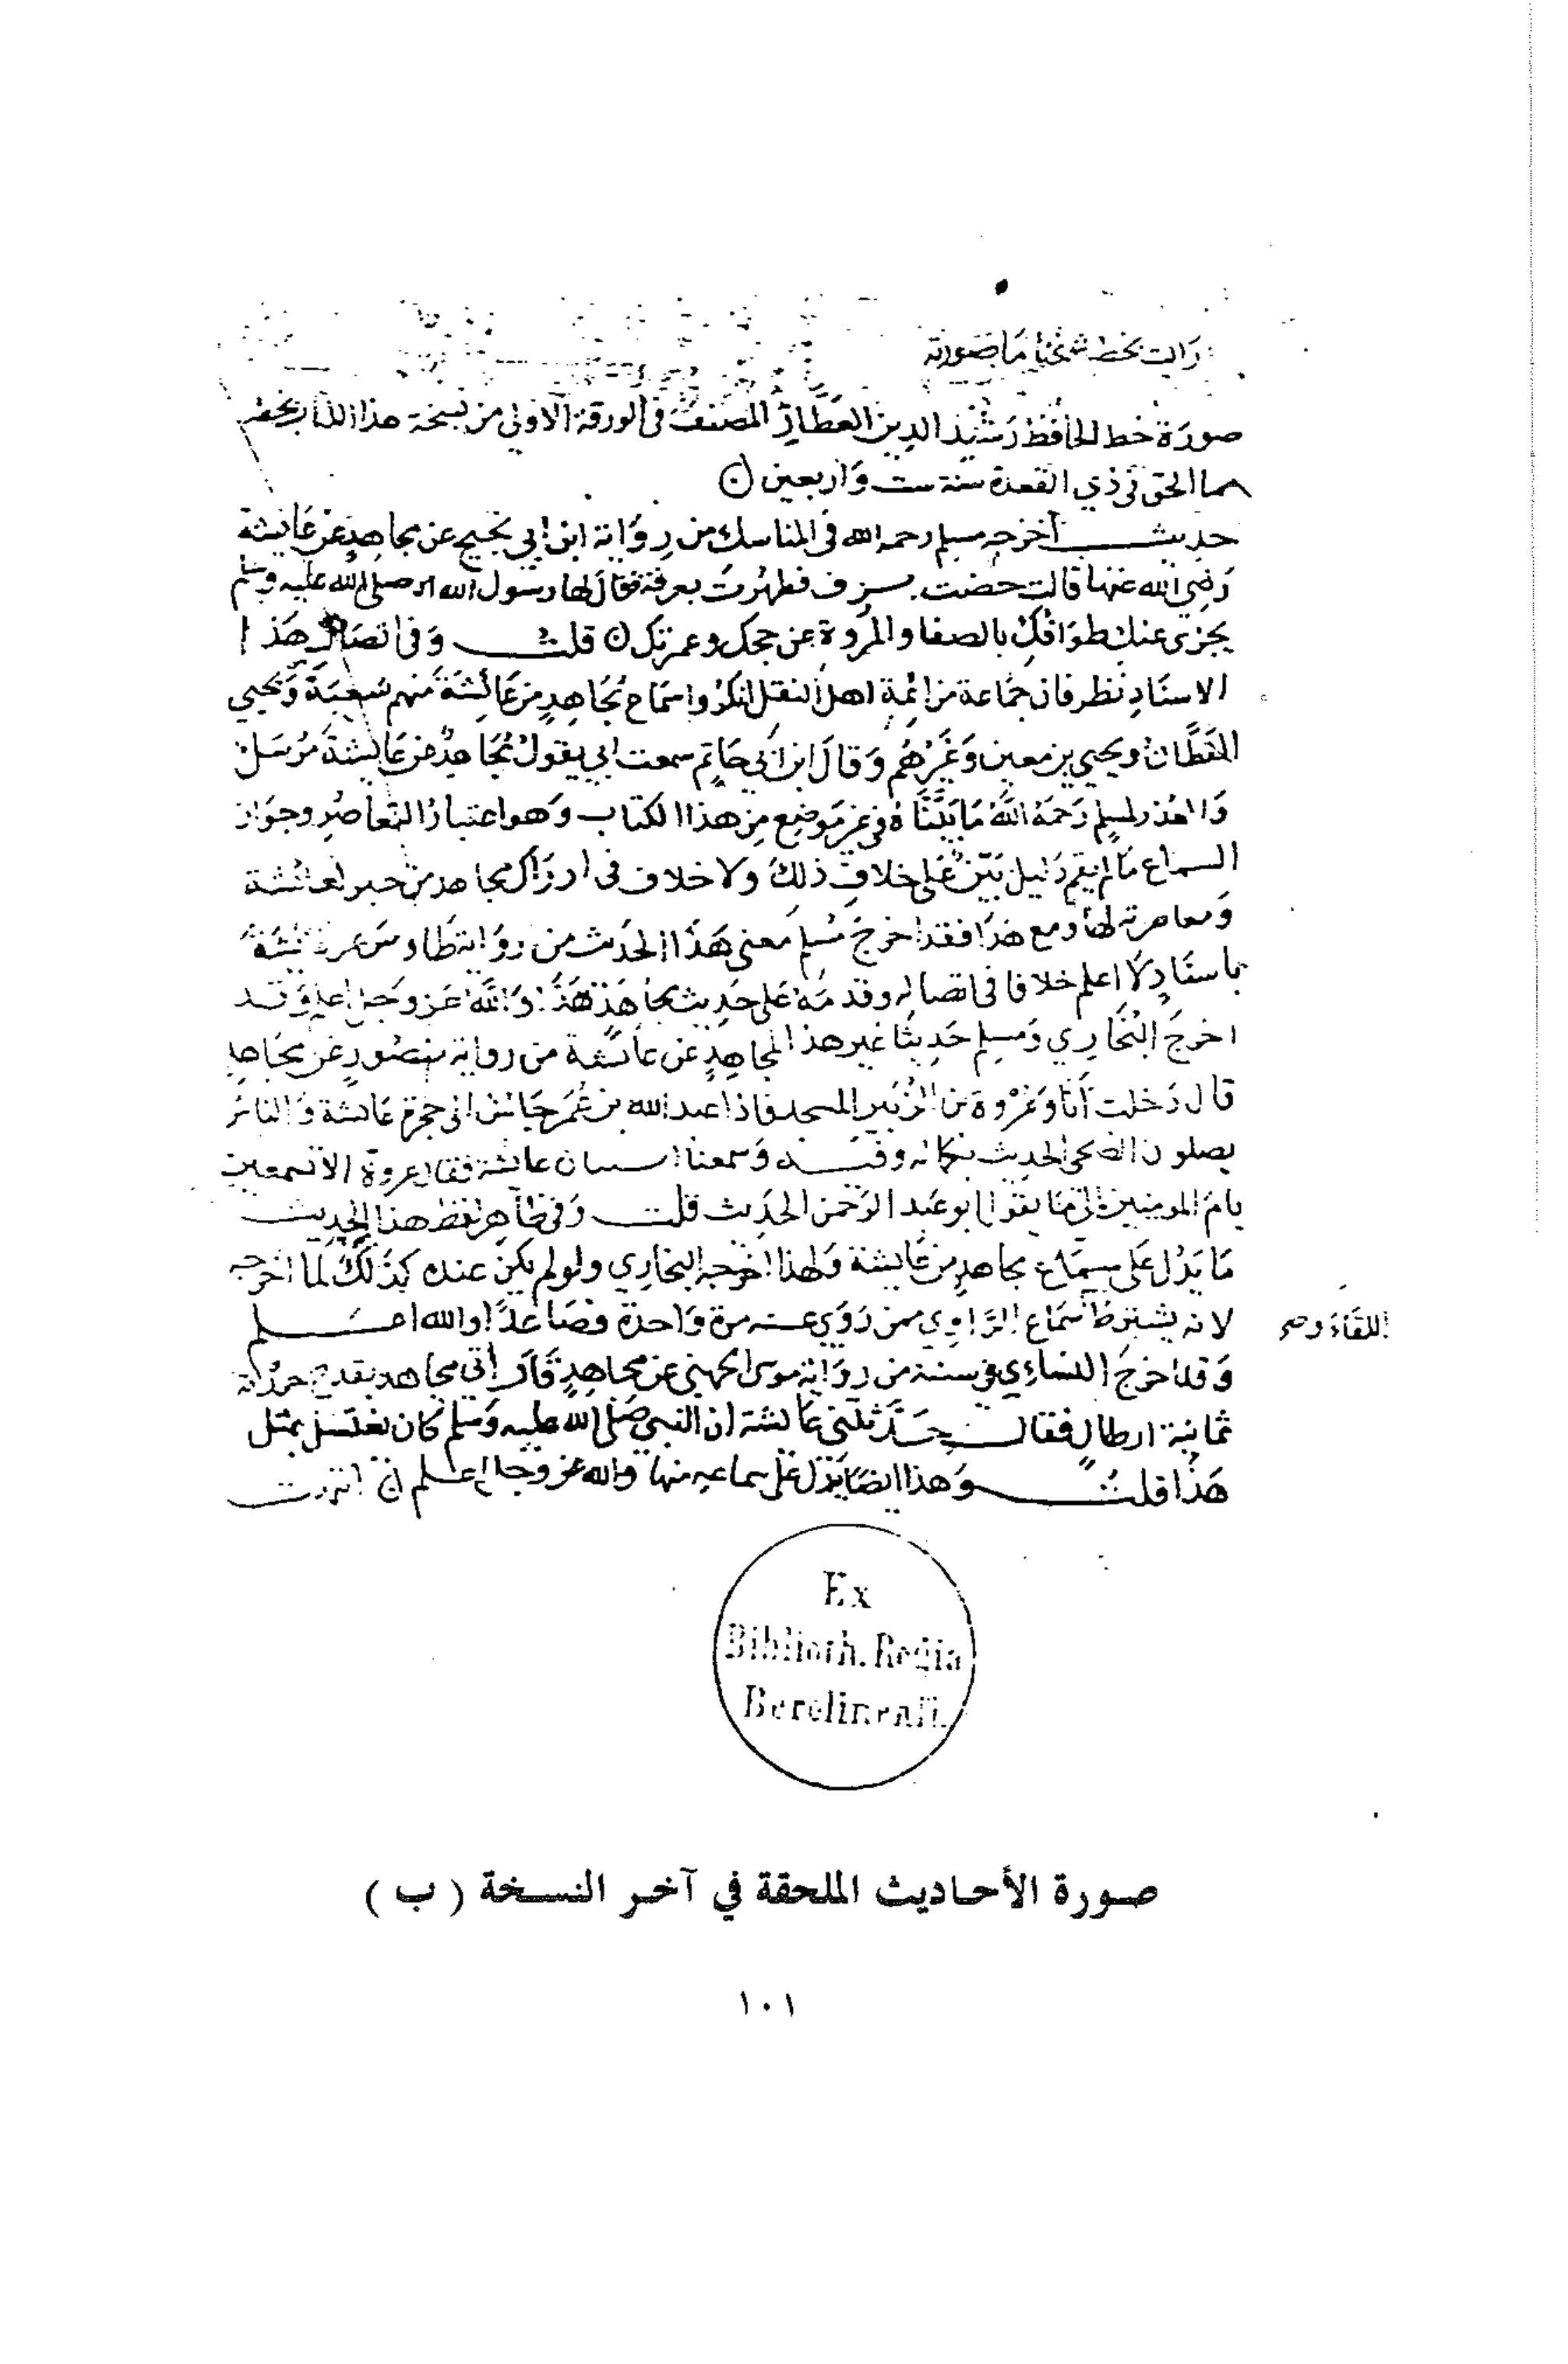 رايت بخط شيخنا ما صورته
صورة خط الحافظ رشيد الدين العطار المصنف في الورقة الاولى من نسخة هذا الكتاب بخطه
مما الحق في ذي القعدة سنة ست واربعين
حديث اخرجه مسلم رحمه الله في المناسك من رواية ابن ابي نجيح عن مجاهد عن عايشة
رضي الله عنها قالت حضت بسرف فطهرت بعرفة فقال لها رسول الله صلى الله عليه وسلم
يجزى عنك طوافك بالصفا والمروة عن حجك وعمرتك قلت وفي اتصال هذا
الاسناد نظر فان جماعة من ائمة اهل النقل انكروا سماع مجاهد من عائشة منهم شعبة ويحيى
القطان ويحيى بن معين وغيرهم وقال ابن ابي حاتم سمعت ابي يقول مجاهد عن عايشة مرسل
والعذر لمسلم رحمه الله ما بيناه في غير موضع من هذا الكتاب وهو اعتبار التعاصر وجواز
السماع ما لم يقم دليل بين على خلاف ذلك ولا خلاف في ادراك مجاهد بن جبر لعائشة
ومعاصرته لها ومع هذا فقد اخرج مسلم معنى هذا الحديث من رواية طاوس عن عايشة
باسناد لا اعلم خلافا في اتصاله وقدمه على حديث مجاهد هذا والله عز وجل اعلم وقد
اخرج البخاري ومسلم حديثا غير هذا لمجاهد عن عائشة من رواية منصور عن مجاهد
قال دخلت انا وعروة بن الزبير المسجد فاذا عبد الله بن عمر جالس الى حجرة عائشة والناس
يصلون الضحى الحديث بكماله وفيه وسمعنا استنان عايشة فقال عروة الا تسمعين
يام المومنين الى ما يقول ابو عبد الرحمن الحديث قلت وفي ظاهر لفظ هذا الحديث
ما يدل على سماع مجاهد من عايشة ولهذا اخرجه البخاري ولو لم يكن عنده كذلك لما اخرجه
لانه يشترط سماع الراوي ممن روى عنه مرة واحدة فصاعدا والله اعلم
اللقاء و صح
وقد اخرج النسائي في سننه من رواية موسى الجهني عن مجاهد قال اتي مجاهد بقدح حزرته
ثمانية ارطال فقال حدثتني عائشة ان النبي صلى الله عليه وسلم كان يغتسل بمثل
هذا قلت وهذا ايضا يدل على سماعه منها والله عز وجل اعلم
Ex
Biblioth. Regia
Berolinensi.
صورة الأحاديث الملحقة في آخر النسخة ( ب )
١٠١